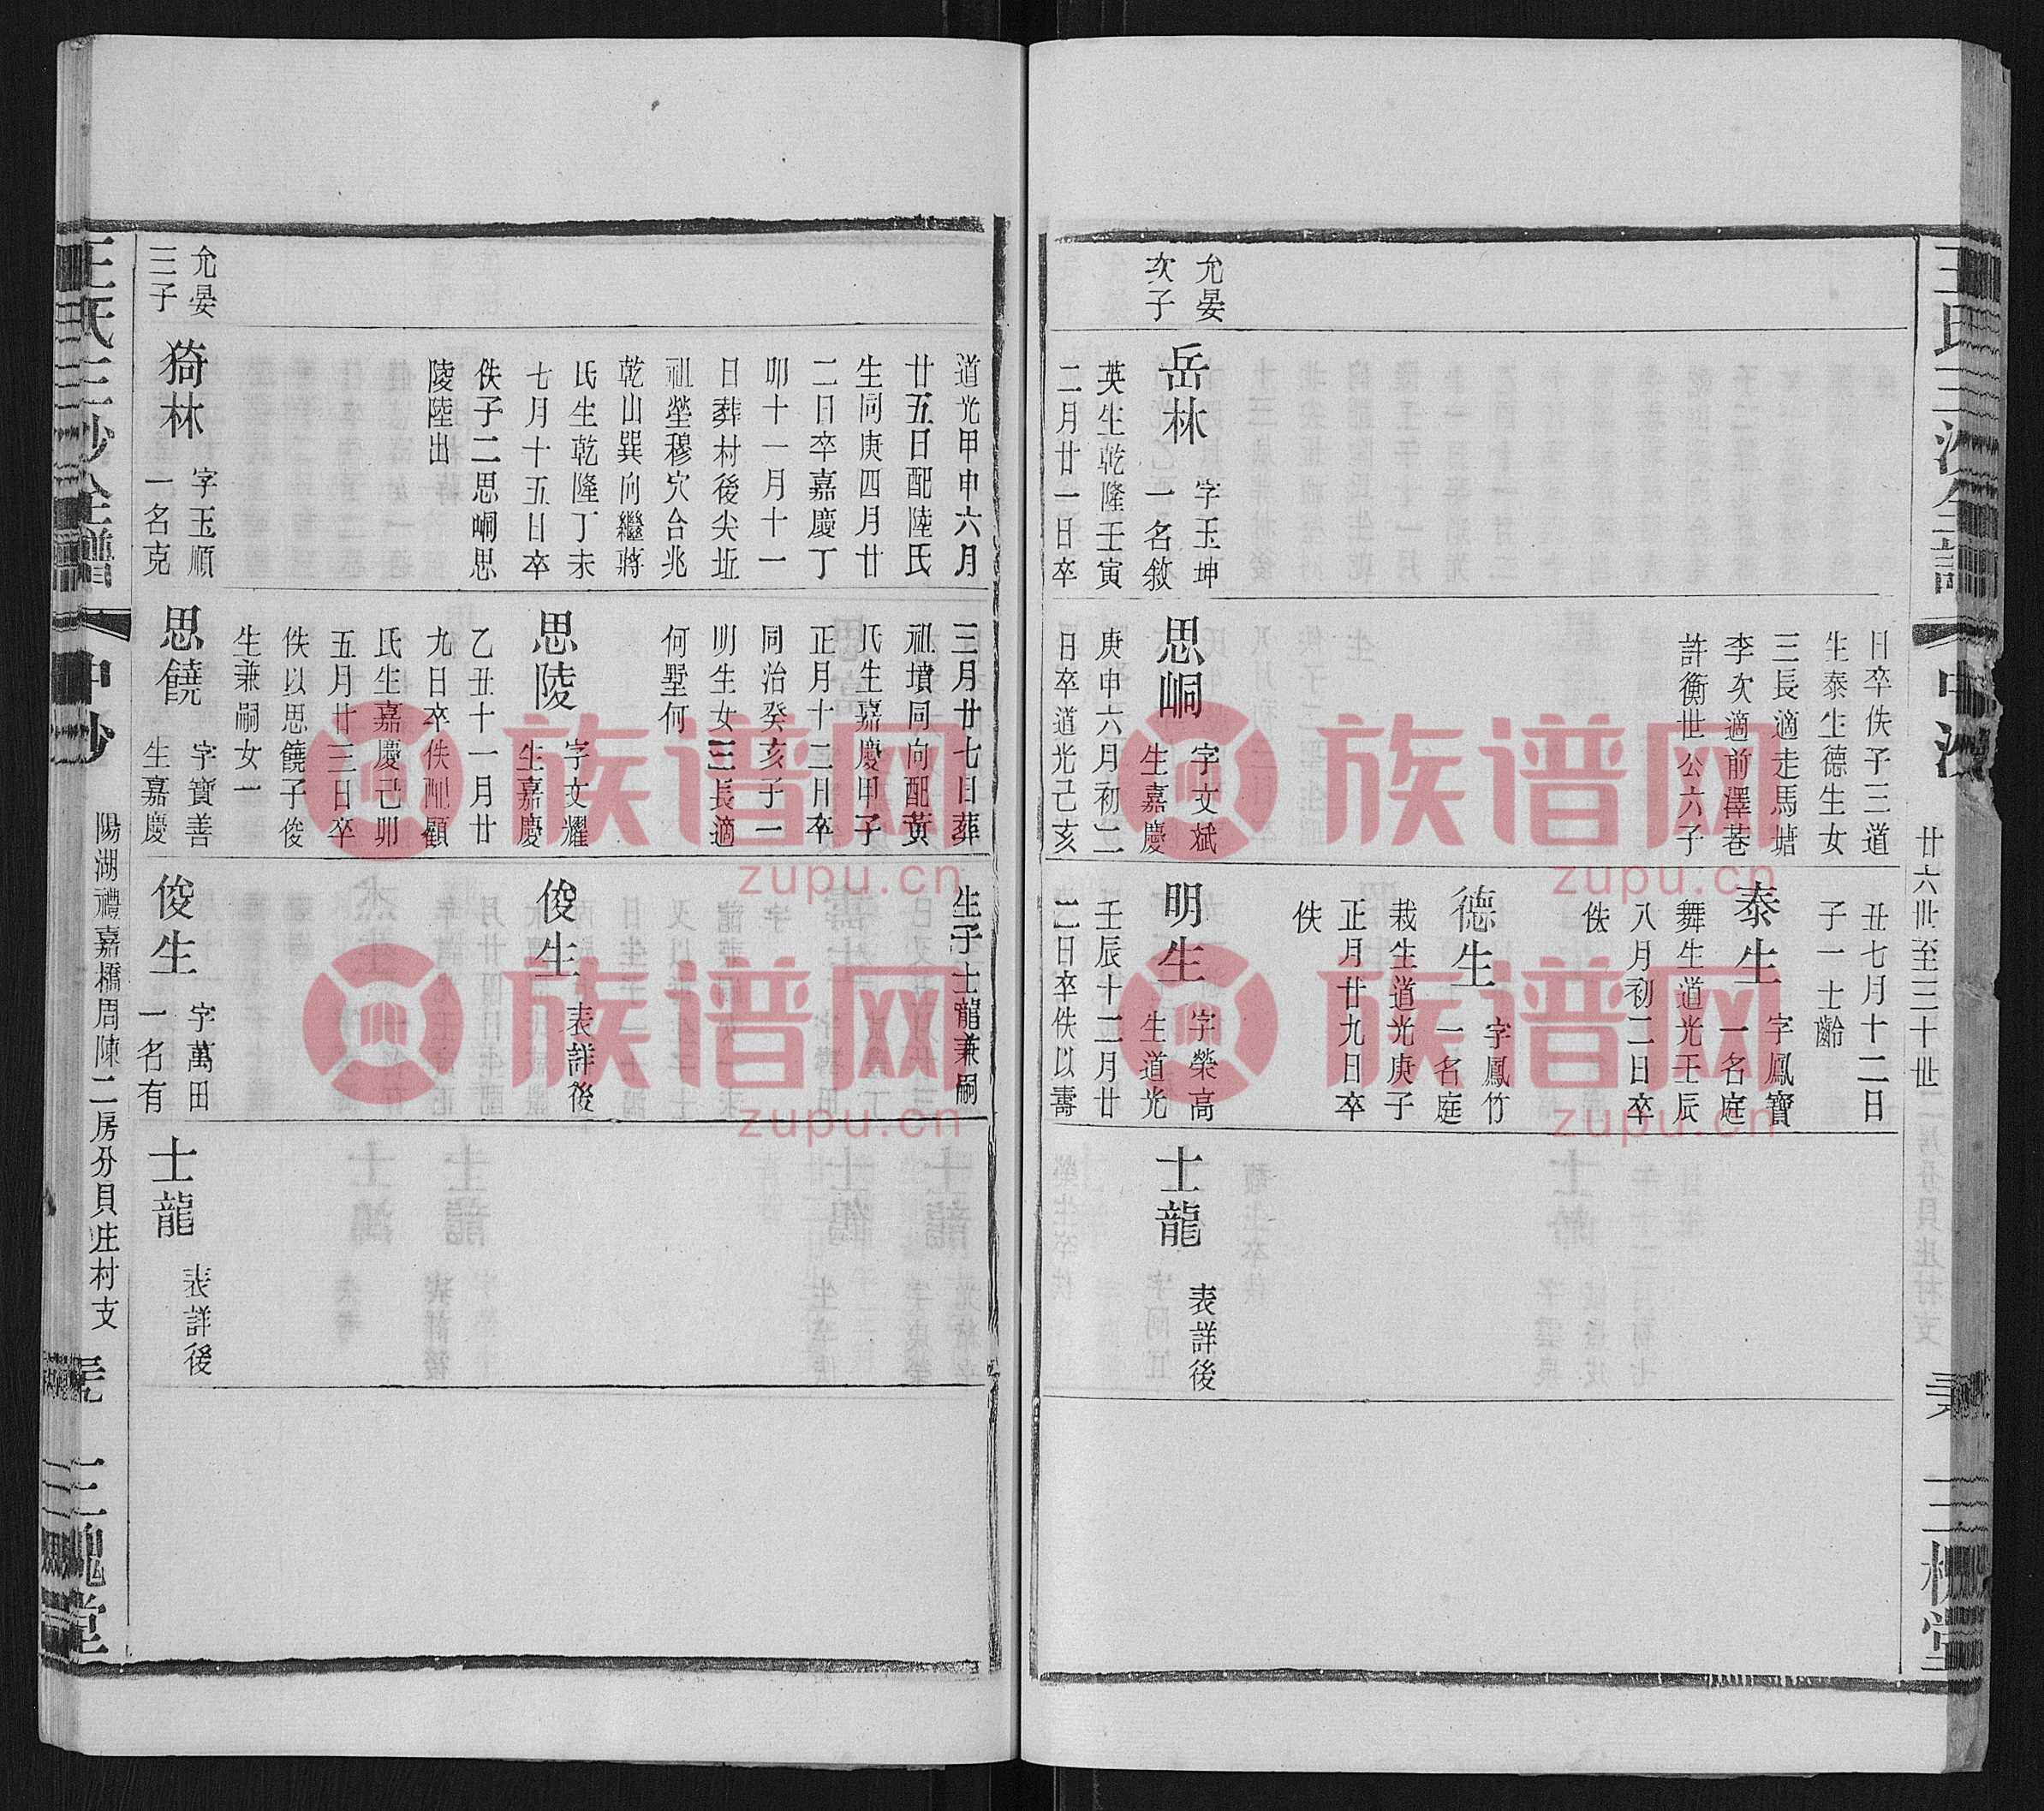 王氏三沙全譜
中沙
廿六世至三十世
三槐堂
允晏
次子
岳林
字玉坤
一名敘
英生乾隆壬寅
二月廿一日卒
日卒佚子三道
生泰生德生女
三長適走馬塘
李次適前澤巷
許衡世公六子
思峒
字文斌
生嘉慶
庚申六月初二
日卒道光己亥
丑七月十二日
子一士齡
泰生
字鳳寶
一名庭
舞生道光壬辰
八月初二日卒
佚
德生
字鳳竹
一名庭
栽生道光庚子
正月廿九日卒
佚
明生
字榮高
生道光
壬辰十二月廿
二日卒佚以壽
士龍
表詳後
道光甲申六月
廿五日配陸氏
生同庚四月廿
二日卒嘉慶丁
卯十一月十一
日葬村後尖坵
祖塋穆穴合兆
乾山巽向繼蔣
氏生乾隆丁未
七月十五日卒
佚子二思峒思
陵陸出
允晏
三子
猗林
字玉順
一名克
三月廿七日葬
祖墳同向配黃
氏生嘉慶甲子
正月十二日卒
同治癸亥子一
明生女三長適
何墅何
思陵
字文耀
生嘉慶
乙丑十一月廿
九日卒佚配顧
氏生嘉慶己卯
五月廿三日卒
佚以思饒子俊
生兼嗣女一
思饒
字寶善
生嘉慶
生子士龍兼嗣
俊生
表詳後
俊生
字萬田
一名有
士龍
表詳後
王氏三沙全譜
中沙
陽湖禮嘉橋周陳二房分貝庄村支
三槐堂
族谱网
zupu.cn
族谱网
zupu.cn
族谱网
zupu.cn
族谱网
zupu.cn